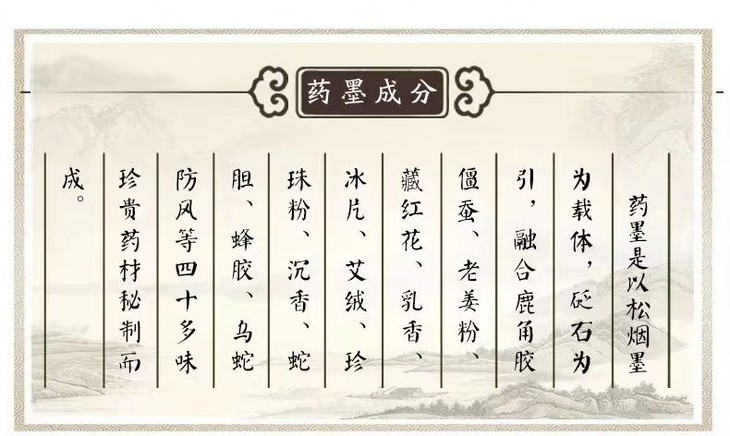 药墨成分
药墨是以松烟墨
为载体，砭石为
引，融合鹿角胶
僵蚕、老姜粉、
藏红花、乳香、
冰片、艾绒、珍
珠粉、沉香、蛇
胆、蜂胶、乌蛇
防风等四十多味
珍贵药材秘制而
成。